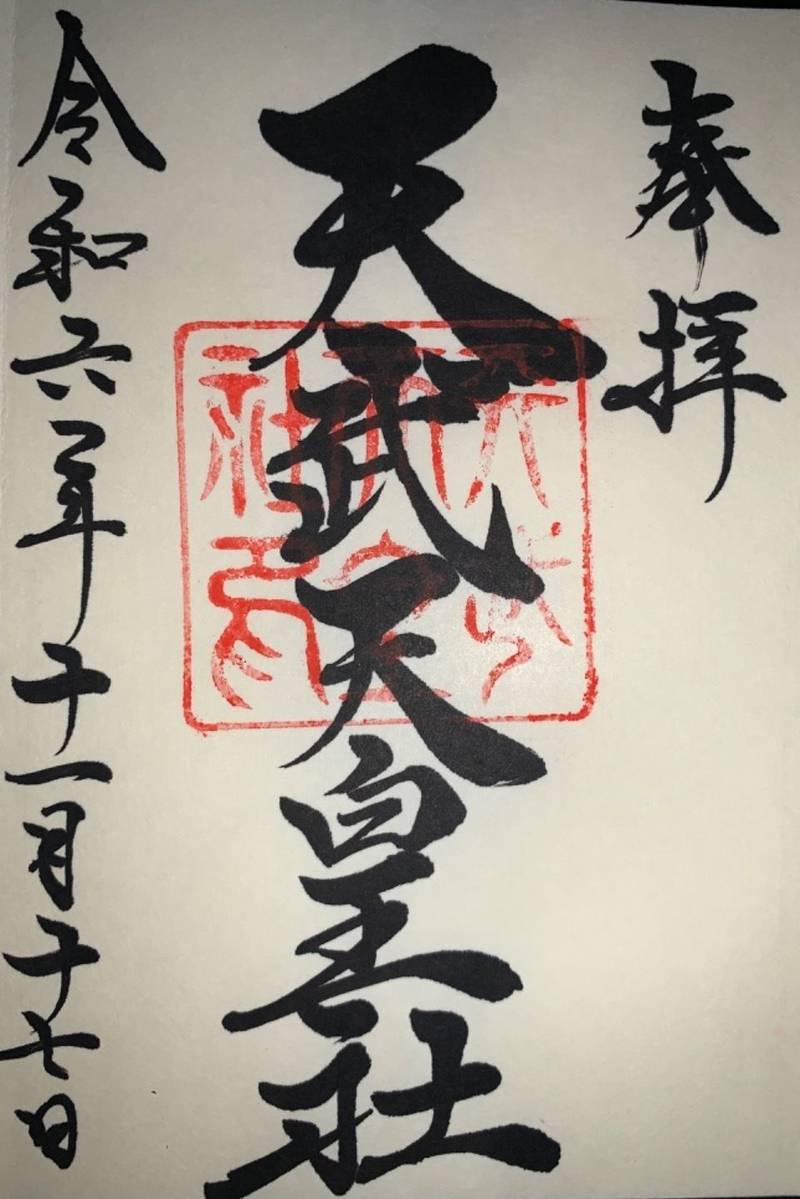 奉拝
天武天皇社
令和六年十一月十七日